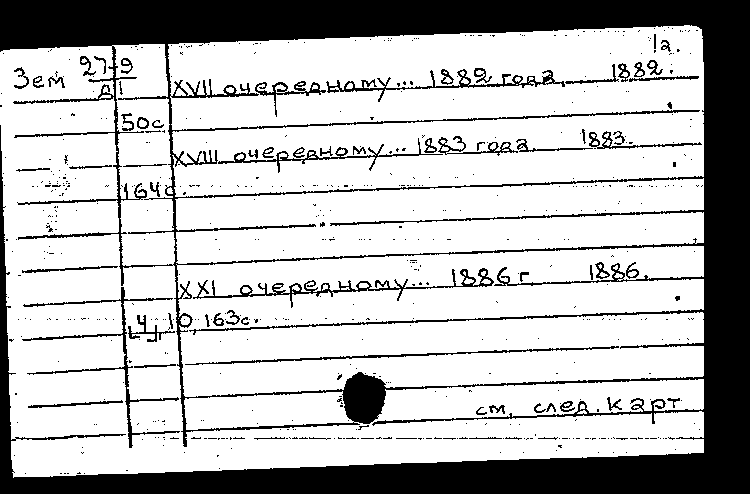 1а.
Зем 27-9 XVII очередному... 1882 года. 1882.
Д1
50с
XVIII очередному... 1883 года. 1883.
164с.
XXI очередному... 1886 г 1886.
[4], 10, 163с.
см. след. карт